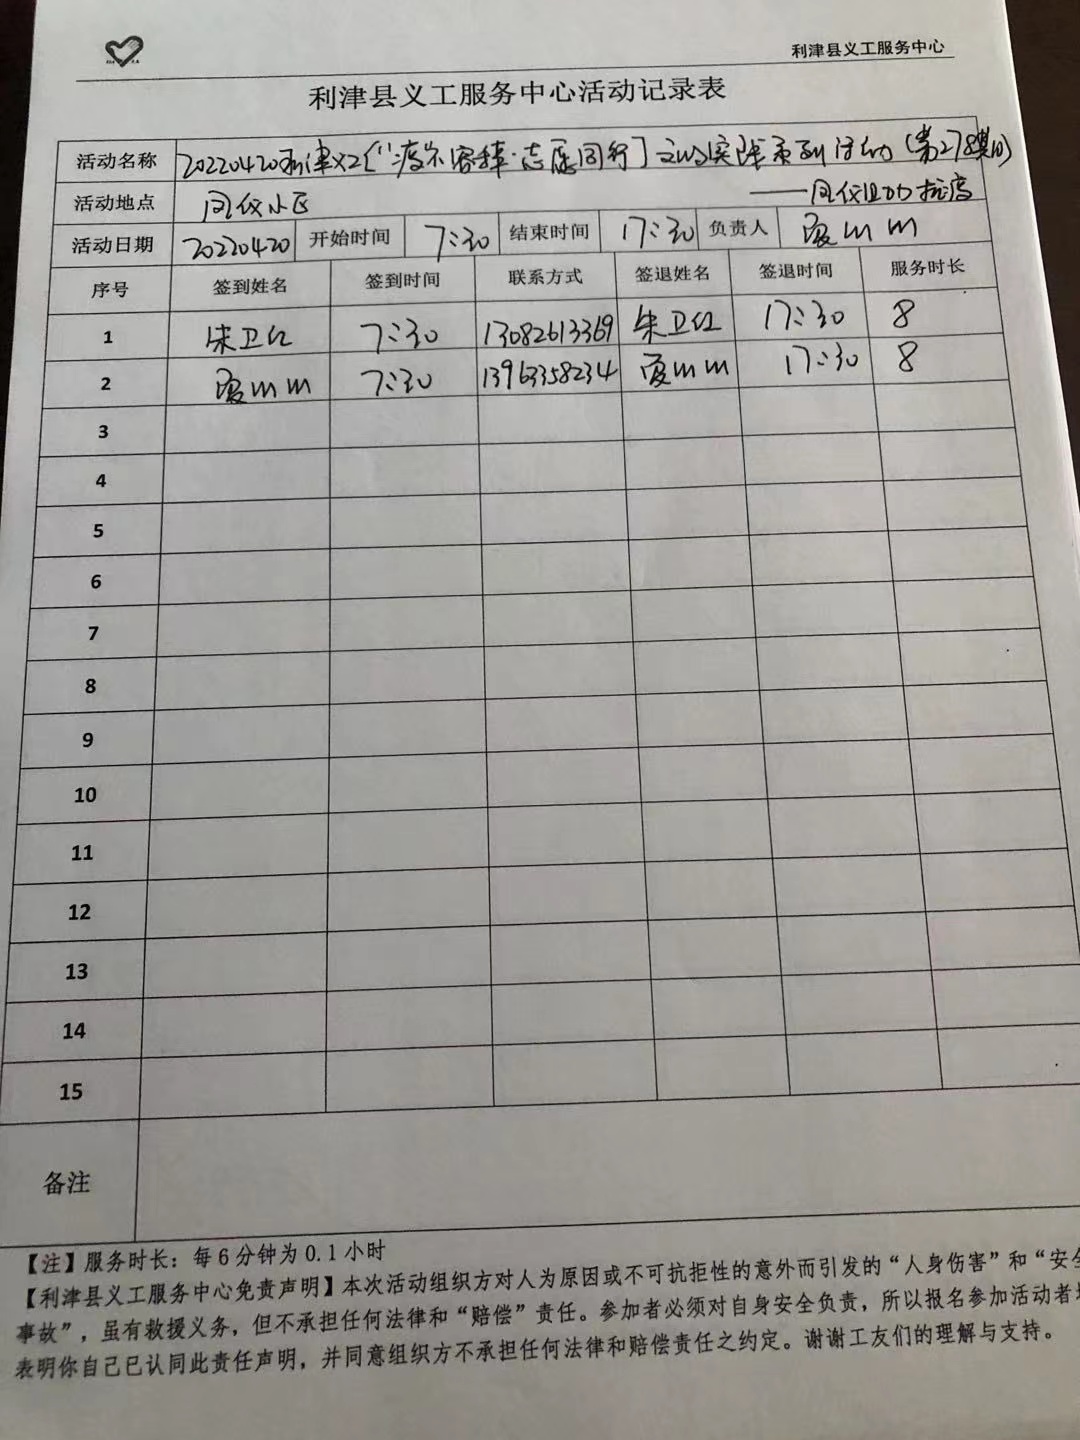 利津县义工服务中心
利津县义工服务中心活动记录表
活动名称 20220420利津义工《"疫"不容辞·志愿同行》文明实践系列活动(第278期)
活动地点 同仪小区 ——同仪 抗疫
活动日期 20220420 开始时间 7:30 结束时间 17:30 负责人
序号 签到姓名 签到时间 联系方式 签退姓名 签退时间 服务时长
1 朱卫红 7:30 13082613369 朱卫红 17:30 8
2 7:30 13963358234 17:30 8
3
4
5
6
7
8
9
10
11
12
13
14
15
备注
【注】服务时长:每6分钟为0.1小时
【利津县义工服务中心免责声明】本次活动组织方对人为原因或不可抗拒性的意外而引发的“人身伤害”和“安全
事故”,虽有救援义务,但不承担任何法律和“赔偿”责任。参加者必须对自身安全负责,所以报名参加活动者
表明你自己已认同此责任声明,并同意组织方不承担任何法律和赔偿责任之约定。谢谢工友们的理解与支持。